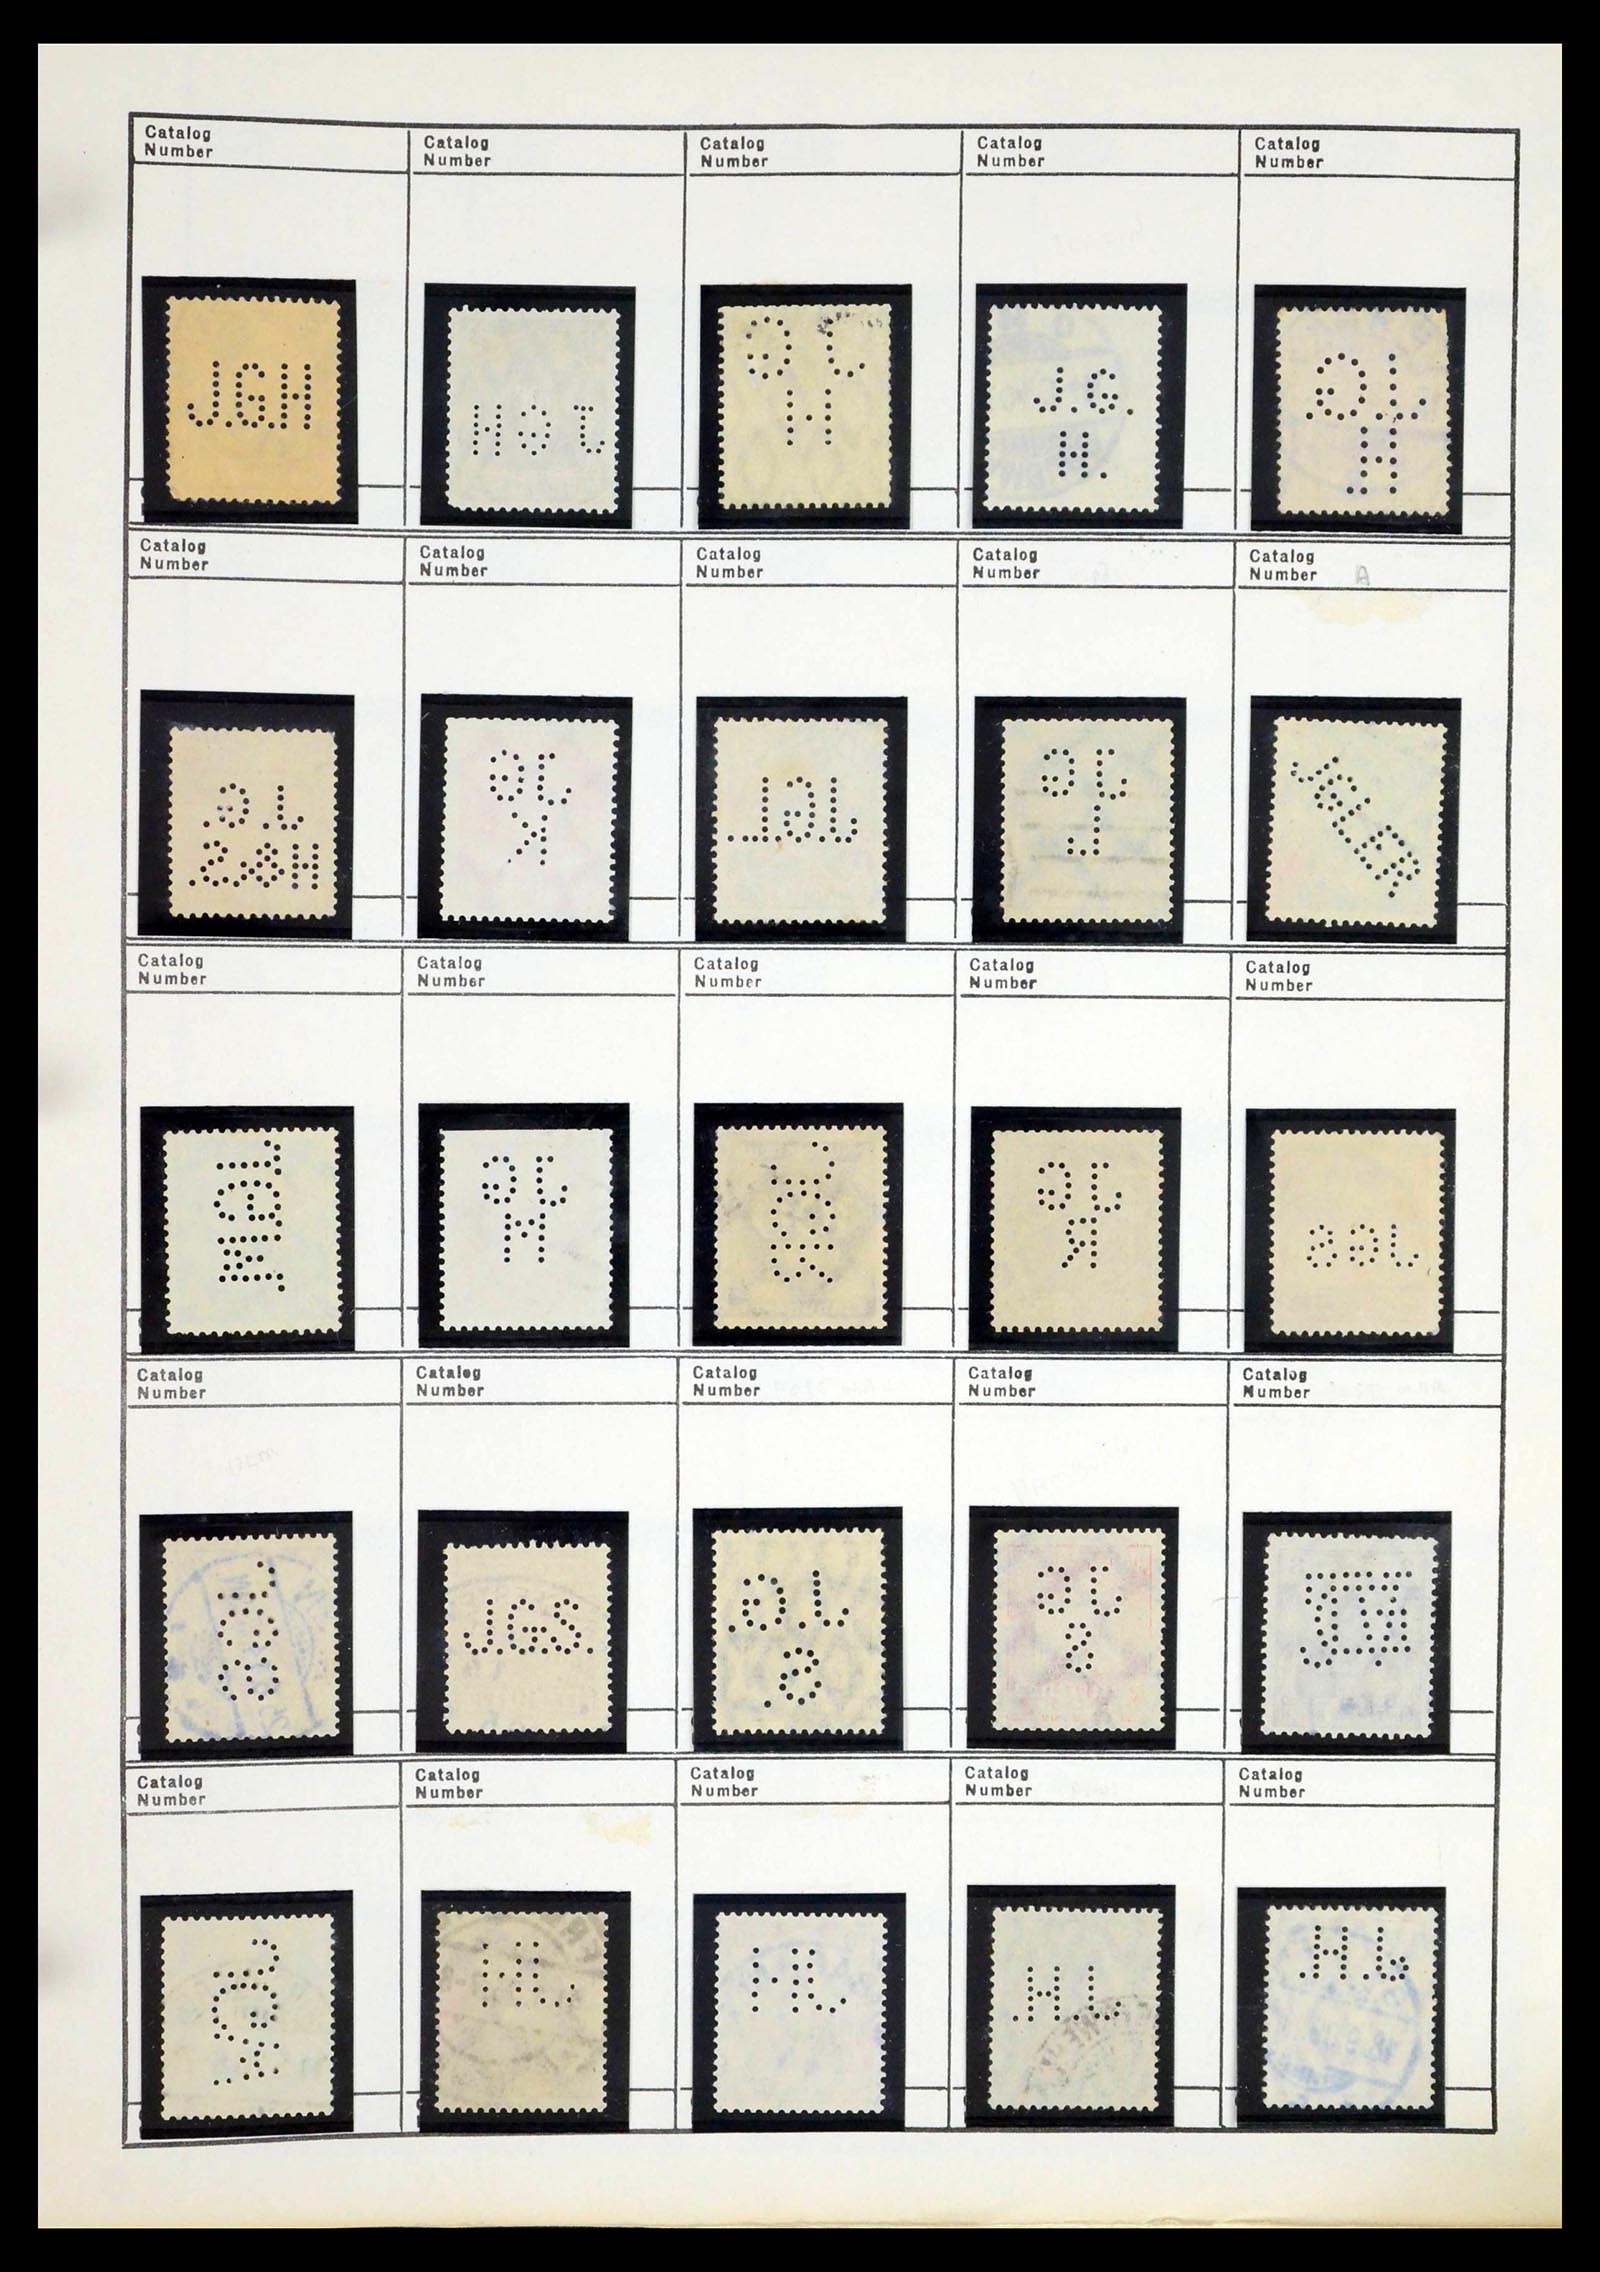 Catalog Number
Catalog Number
Catalog Number
Catalog Number
Catalog Number
J.G.H
HGJ
GJ
H
J.G.
H.
J.G.
H.
Catalog Number
Catalog Number
Catalog Number
Catalog Number
Catalog Number A
J.G.
H&S.
JG
K
JGL
JG
L
Catalog Number
Catalog Number
Catalog Number
Catalog Number
Catalog Number
JGM
JG
M
JGR
JG
R
JGS
Catalog Number
Catalog Number
Catalog Number
Catalog Number
Catalog Number
JGS
J.G.S.
J.G.
S.
JG
S
Catalog Number
Catalog Number
Catalog Number
Catalog Number
Catalog Number
JH
JH
J.H.
J.H.